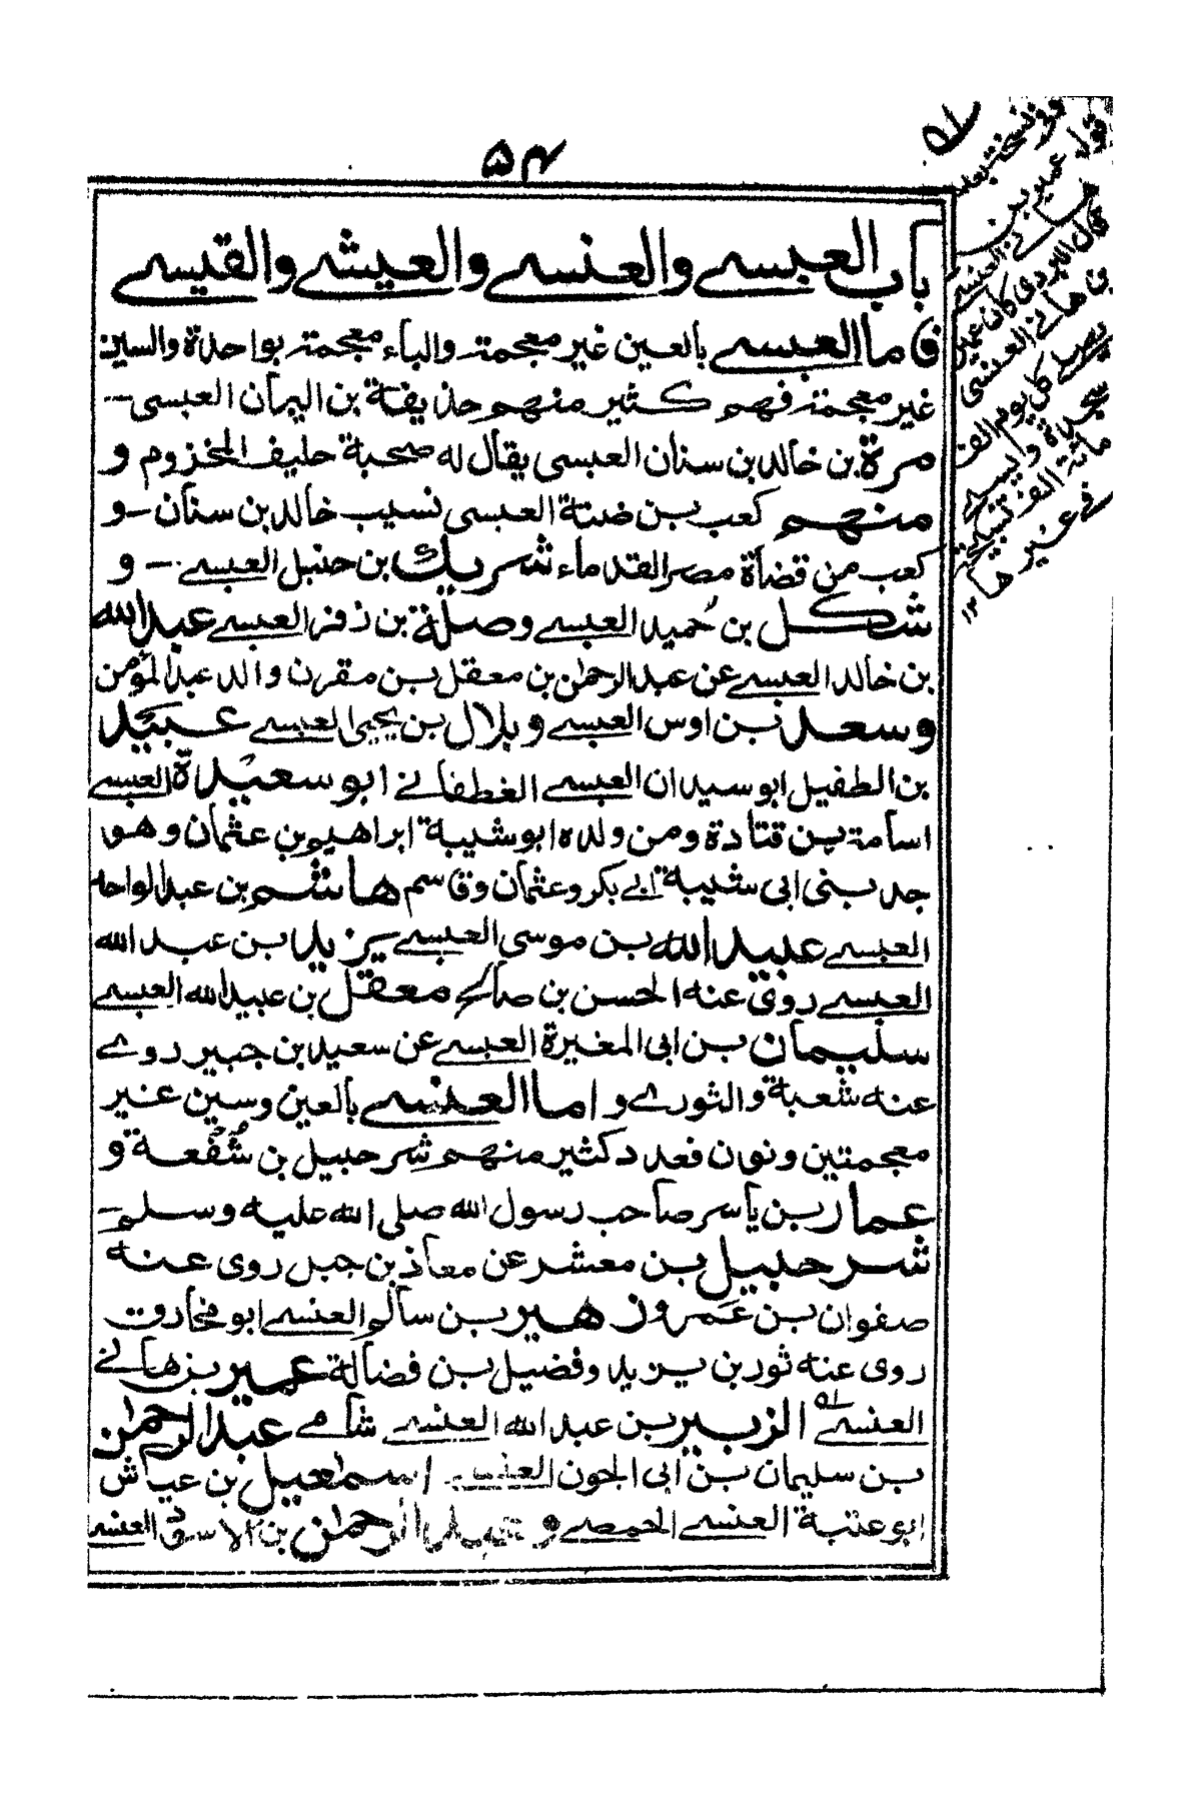 ۵۴
باب العبسے والعنسے والعیشے والقیسے
فاما العبسے بالعین غیر معجمۃ والباء معجمۃ بواحدۃ والسین
غیر معجمۃ فهم کثیر منهم حذیفۃ بن الیمان العبسی -
مرۃ بن خالد بن سنان العبسی یقال له صحبة حلیف المخزوم و
منهم کعب بن ضنۃ العبسی نسیب خالد بن سنان - و
کعب من قضاۃ مصر القدماء شریك بن حنبل العبسے - و
شکل بن حُمید العبسے وصلۃ بن زفر العبسے عبد الله
بن خالد العبسے عن عبد الرحمٰن بن معقل بن مقرن والد عبد المؤمن
وسعد بن اوس العبسے وبلال بن یحیی العبسے عبید
بن الطفیل ابو سیدان العبسے الغطفانے ابو سعیدۃ العبسے
اسامۃ بن قتادۃ ومن ولده ابو شیبۃ ابراهیم بن عثمان وهو
جد بنی ابی شیبۃ ابے بکر وعثمان وقاسم هاشم بن عبد الواحد
العبسے عبید الله بن موسی العبسے یزید بن عبد الله
العبسے روی عنه الحسن بن صالح معقل بن عبید الله العبسے
سلیمان بن ابی المغیرۃ العبسے عن سعید بن جبیر روے
عنه شعبۃ والثورے واما العنسے بالعین وسین غیر
معجمتین ونون فعدد کثیر منهم شرحبیل بن شُفْعۃ و
عمار بن یاسر صاحب رسول الله صلی الله علیه وسلم -
شرحبیل بن معشر عن معاذ بن جبل روی عنه
صفوان بن عَمرو زهیر بن سالم العنسے ابو مخارق
روی عنه ثور بن یزید وفضیل بن فضالۃ عمیر بن هانے
العنسے الزبیر بن عبد الله العنسے شامے عبد الرحمٰن
بن سلیمان بن ابی الجون العنسے اسمٰعیل بن عیاش
ابو عتبۃ العنسے الحمصے وعبد الرحمٰن بن الاسود العنسے
قوله عمیر بن
هانے العنسے
کان عمیر
بن هانے العنسی
یصلے کل یوم الف
سجدۃ ویسبح
مائۃ الف تسبیحۃ